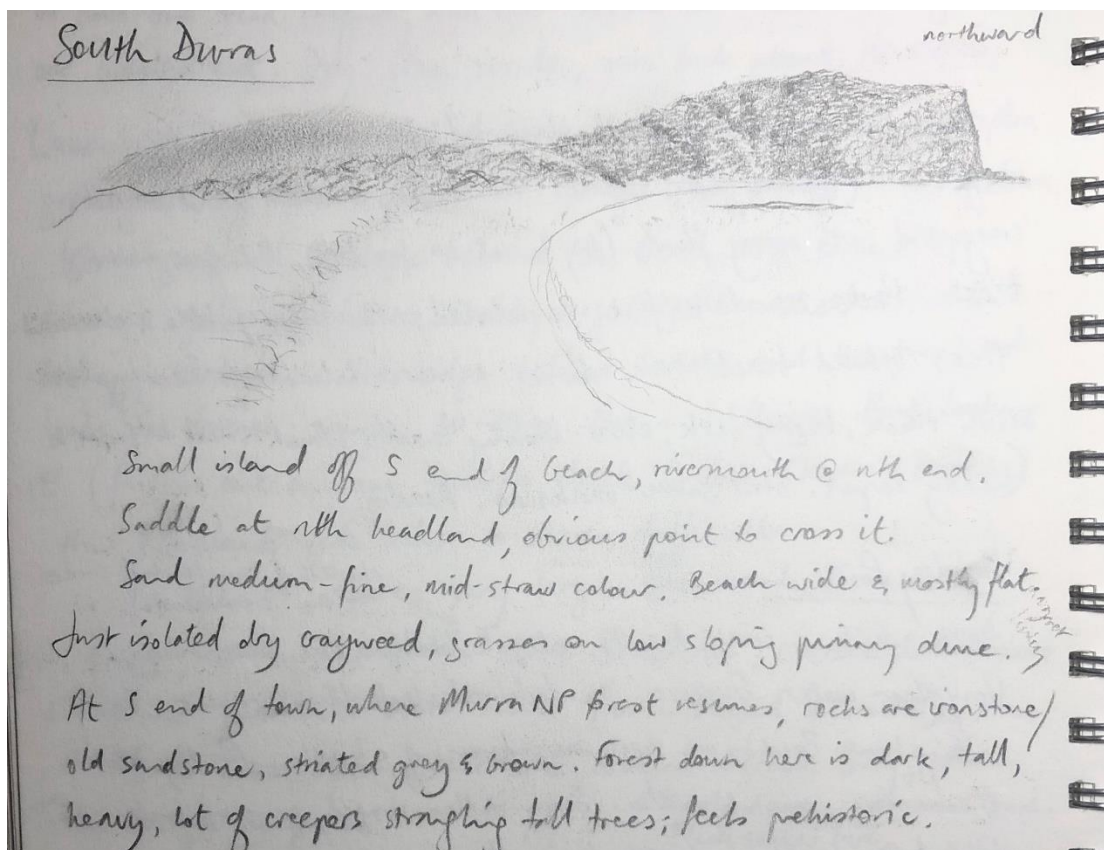 South Durras
northward
Small island off S end of beach, rivermouth @ nth end.
Saddle at nth headland, obvious point to cross it.
Sand medium-fine, mid-straw colour. Beach wide & mostly flat.
Just isolated dry crayweed, grasses on low sloping primary dune.
At S end of town, where Murra NP forest resumes, rocks are ironstone/
old sandstone, striated grey & brown. Forest down here is dark, tall,
heavy, lot of creepers strangling tall trees; feels prehistoric.